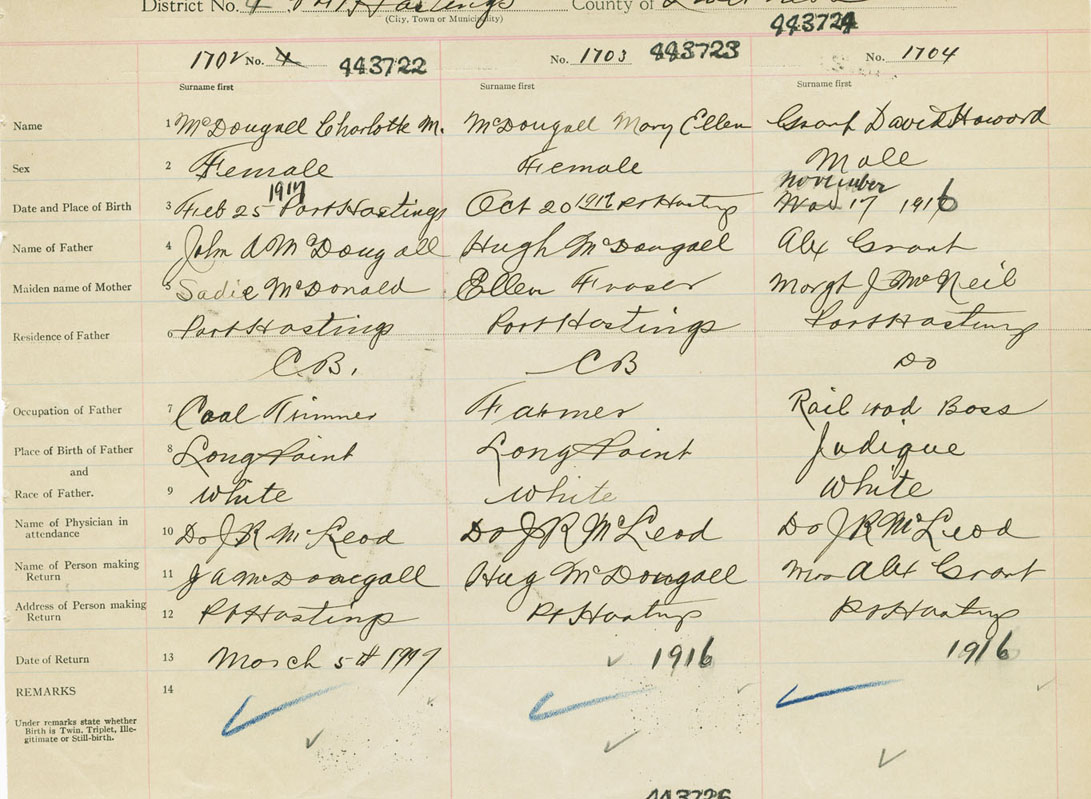 District No. 4 Pt Hastings County of
(City, Town or Municipality)
443724
1702 No. 4 443722 No. 1703 443723 No. 1704
Surname first Surname first Surname first
Name 1 McDougall Charlotte M. McDougall Mary Ellen Grant David Howard
Sex 2 Female Female Male
1917 November
Date and Place of Birth 3 Feb 25 Port Hastings Oct 20 1916 Pt Hastings 17 1916
Name of Father 4 John A McDougall Hugh McDougall Alex Grant
Maiden name of Mother 5 Sadie McDonald Ellen Fraser Margt J McNeil
Residence of Father 6 Port Hastings Port Hastings Port Hastings
C B. C B Do
Occupation of Father 7 Coal Trimmer Farmer Rail road Boss
Place of Birth of Father 8 Long Point Long Point Judique
and
Race of Father. 9 White White White
Name of Physician in attendance 10 Do J R McLeod Do J R McLeod Do J R McLeod
Name of Person making Return 11 J A McDougall Hug McDougall Mrs Alex Grant
Address of Person making Return 12 Pt Hastings Pt Hastings Pt Hastings
Date of Return 13 March 5th 1917 1916 1916
REMARKS 14
Under remarks state whether
Birth is Twin, Triplet, Ille-
gitimate or Still-birth.